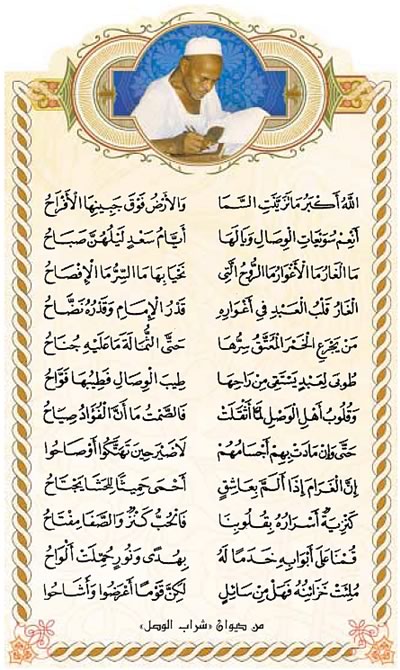 اللَّهُ أَكْبَرُ مَا تَزَيَّنَتِ السَّمَا وَالْأَرْضُ فَوْقَ جَبِينِهَا الْأَفْرَاحُ
أَنْعِمْ سُوَيْعَاتِ الْوِصَالِ وَيَا لَهَا أَيَّامُ سَعْدٍ لَيْلُهُنَّ صَبَاحُ
مَا الْغَارُ مَا الْأَغْوَارُ مَا الرُّوحُ الَّتِي نَحْيَا بِهَا مَا السِّرُّ مَا الْإِفْصَاحُ
الْغَارُ قَلْبُ الْعَبْدِ فِي أَغْوَارِهِ قَدْرُ الْإِمَامِ وَقَدْرُهُ نَضَّاحُ
مَنْ يَجْرَعِ الْخَمْرَ الْمُعَتَّقَ سِرُّهَا حَتَّى الثُّمَالَةَ مَا عَلَيْهِ جُنَاحُ
طُوبَى لِعَبْدٍ يَسْتَقِي مِنْ رَاحِهَا طِيبَ الْوِصَالِ فَطِيبُهَا فَوَّاحُ
وَقُلُوبُ أَهْلِ الْوَصْلِ لَمَّا أُثْقِلَتْ فَالصَّمْتُ مَا أَنَّ الْفُؤَادُ صِيَاحُ
حَتَّى وَإِنْ مَادَتْ بِهِمْ أَجْسَامُهُمْ لَا ضَيْرَ حِينَ تَهَتَّكُوا أَوْ صَاحُوا
إِنَّ الْغَرَامَ إِذَا أَلَمَّ بِعَاشِقٍ أَضْحَى حَمِيمًا لِلْحَشَا يَجْتَاحُ
كَنْزِيَّةٌ أَسْرَارُهُ بِقُلُوبِنَا فَالْحُبُّ كَنْزٌ وَالصَّفَا مِفْتَاحُ
قُمْنَا عَلَى أَبْوَابِهِ خَدَمًا لَهُ بِهُدًى وَنُورٍ حُمِّلَتْ أَلْوَاحُ
مُلِئَتْ خَزَائِنُهُ فَهَلْ مِنْ سَائِلٍ لَكِنَّ قَوْمًا أَعْرَضُوا وَأَشَاحُوا
من ديوان «شراب الوصل»